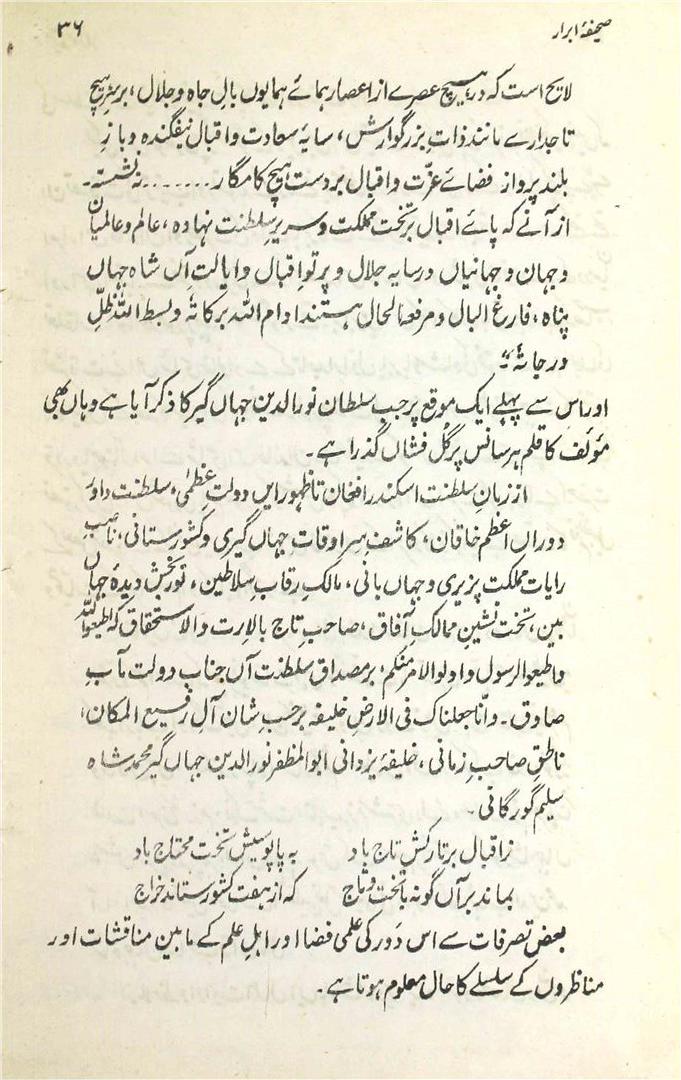 صحیفۂ ابرار
۳۶
لایح است که در ہیچ عصرے از اعصار ہمائے ہمایوں بالِ جاہ و جلال، برسرِ ہیچ
تاجدارے مانند ذاتِ بزرگوارش، سایۂ سعادت و اقبال نیفگنده و بازِ
بلند پرواز فضائے عزّت و اقبال بردست ہیچ کامگار ........ نہ نشستہ۔
از آنے کہ پائے اقبال بر تخت مملکت و سریرِ سلطنت نہادہ، عالم و عالمیان
وجہان وجہانیاں درسایہ جلال و پرتوِ اقبال وایالت آں شاہ جہاں
پناہ، فارغ البال و مرفعہ الحال ہستند ادام اللہ برکاتہٗ وبسط اللہ ظلّ
درجاتہٗ "
اور اس سے پہلے ایک موقع پر جب سلطان نور الدین جہاں گیر کا ذکر آیا ہے وہاں بھی
مؤلف کا قلم ہر سانس پر گُل فشاں گذرا ہے۔
از زمانِ سلطنت اسکندر افغان تا ظہور ایں دولتِ عظمٰی، سلطنت داوَر
دوراں اعظم خاقان، کاشف سراوقات جہاں گیری و کشور ستانی، ناصبِ
رایات مملکت پزیری وجہاں بانی، مالک رقاب سلاطین، نور بخش دیدۂ جہاں
بین، تخت نشینِ ممالکِ آفاق، صاحب تاج بالارت والاستحقاق کہ اطیعو اللہ
واطیعو الرسول و اولو الامر منکم، بر مصداق سلطنت آں جناب دولت مآب
صادق۔ وانّا جعلناک فی الارضِ خلیفہ برحسبِ شان آں رفیع المکان،
ناطق صاحب زمانی، خلیفۂ یزدانی ابو المظفر نور الدین جہاں گیر محمد شاہ
سلیم گورگانی۔
زاقبال بر تارکش تاج باد بہ پاپوسیش تخت محتاج باد
بماند برآں گونہ باتخت و تاج کہ از ہفت کشورستاند خراج
بعض تصرفات سے اس دَور کی علمی فضا اور اہلِ علم کے مابین مناقشات اور
مناظروں کے سلسلے کا حال معلوم ہوتا ہے۔